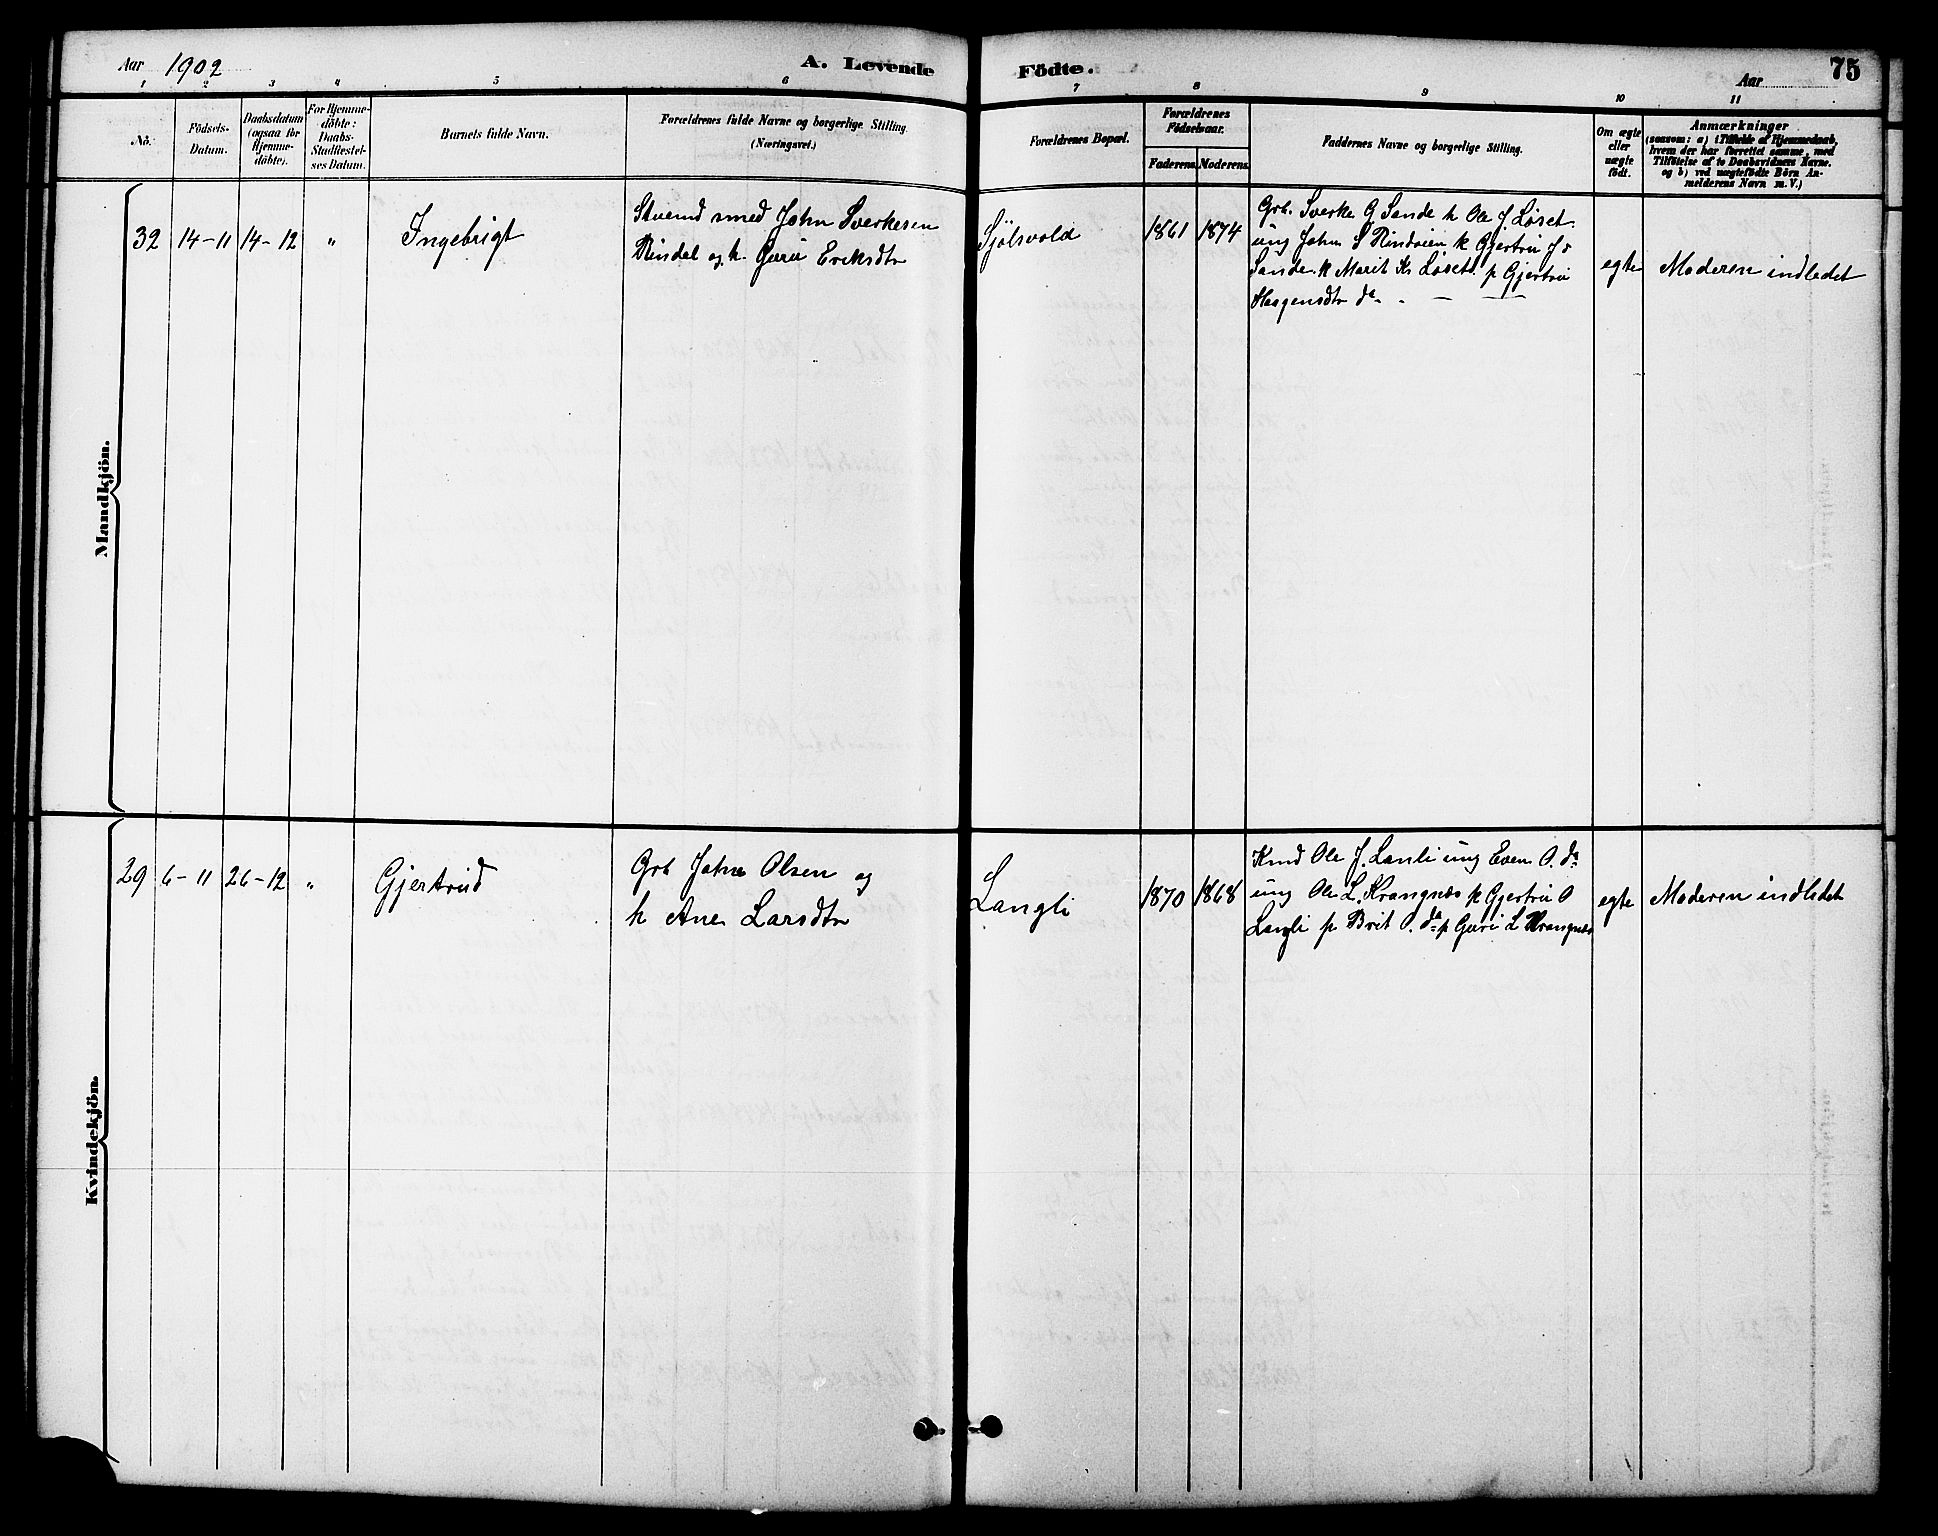 Aar 1902
A. Levende Födte.
Aar
75
1 2 3 4 5 6 7 8 9 10 11
No.
Födsels-
Datum.
Daabsdatum
(ogsaa for
Hjemme-
döbte).
For Hjemme-
döbte:
Daabs-
Stadfæstel-
ses Datum.
Barnets fulde Navn.
Forældrenes fulde Navne og borgerlige Stilling.
(Næringsvei.)
Forældrenes Bopæl.
Forældrenes
Födselsaar.
Faderens. Moderens.
Faddernes Navne og borgerlige Stilling.
Om ægte
eller
uægte
födt.
Anmærkninger
(saasom: a) i Tilfælde af Hjemmedaab,
hvem der har forrettet samme, med
Tilföielse af to Daabsvidners Navne.
og b) ved uægtefödte Börn An-
melderens Navn m. V.)
Mandkjön.
32 14-11 14-12 "
Ingebrigt
Stuemd smed John Sverkesen
Rindal og h. Guru Eriksdtr
Sjölsvold
1861 1874
Grb. Sverke G Sande k Ole J. Løset
ung John S Rindøien k Gjertru J s
Sande k Marit Kr Løset p Gjertru
Haagensdtr do - -
egte
Moderen indledet
Kvindekjön.
29 6-11 26-12 "
Gjertrud
Grb John Olsen og
h Ane Larsdtr
Langli
1870 1868
Kmd Ole J. Lanli ung Even O. do
ung Ole L. Krangnæs k Gjertru O
Langli p Brit O. do p Guri L Krangnæs
egte
Moderen indledet